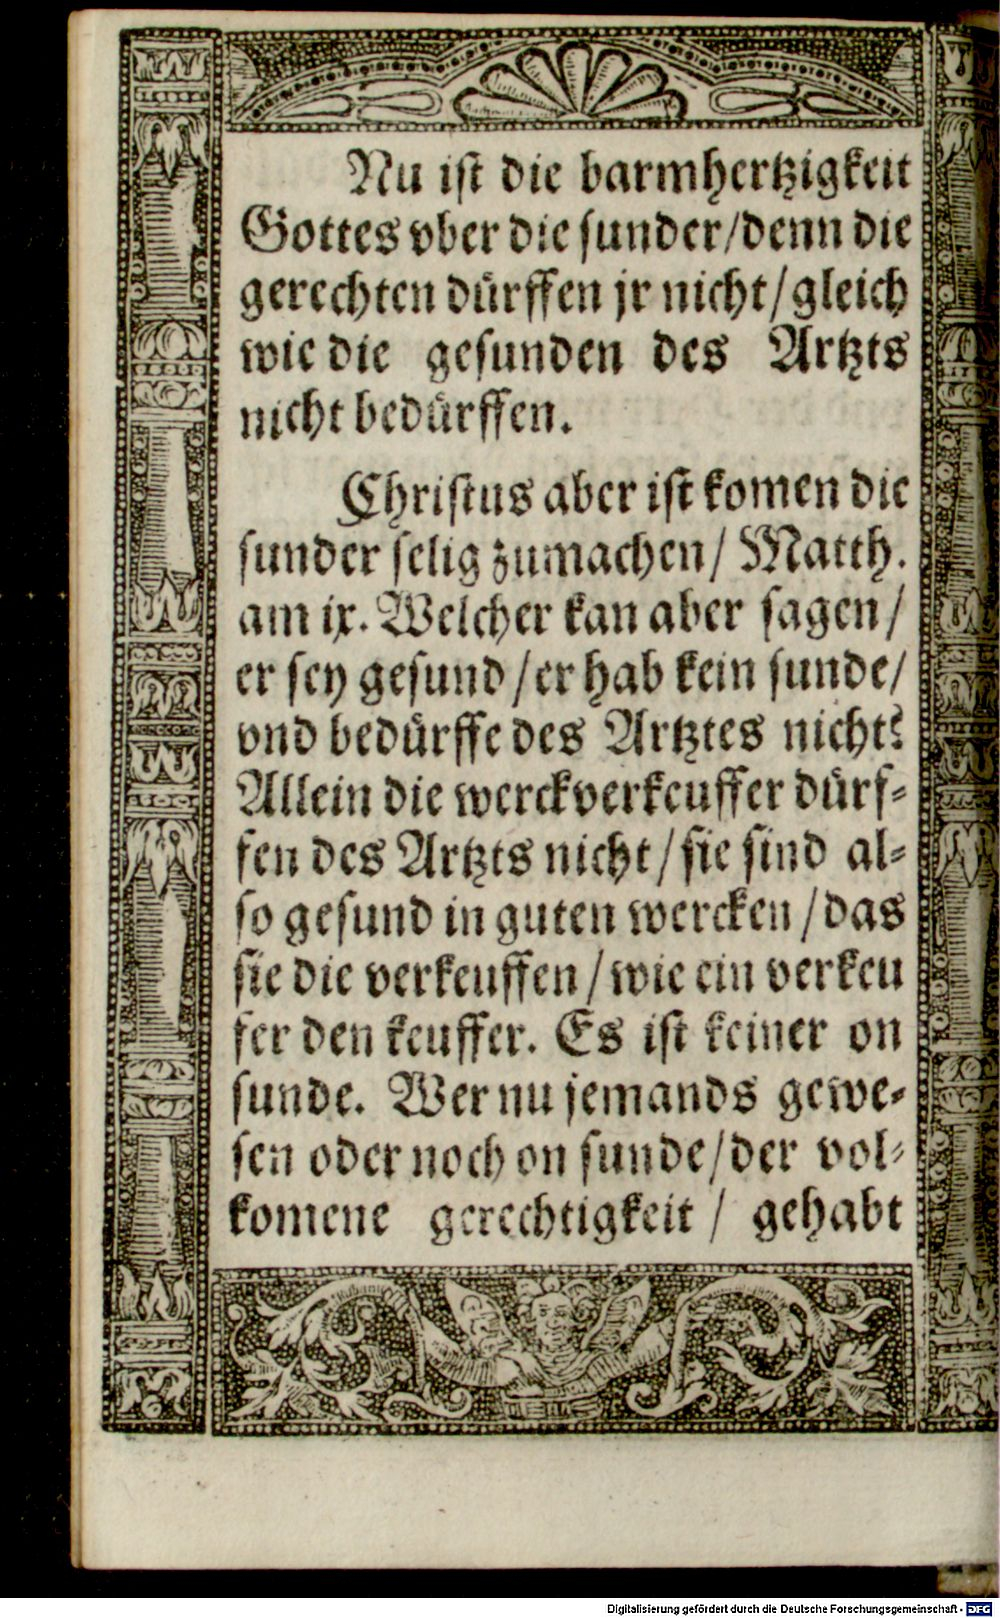 Nu ist die barmhertzigkeit
Gottes vber die sunder/denn die
gerechten dürffen jr nicht/gleich
wie die gesunden des Artzts
nicht bedürffen.
Christus aber ist komen die
sunder selig zumachen/ Matth.
am ix. Welcher kan aber sagen/
er sey gesund/er hab kein sunde/
vnd bedürffe des Artztes nicht?
Allein die werckverkeuffer dürf-
fen des Artzts nicht/sie sind al-
so gesund in guten wercken/das
sie die verkeuffen/wie ein verkeu
fer den keuffer. Es ist keiner on
sunde. Wer nu jemands gewe-
sen oder noch on sunde/der vol-
komene gerechtigkeit/ gehabt
Digitalisierung gefördert durch die Deutsche Forschungsgemeinschaft - DFG